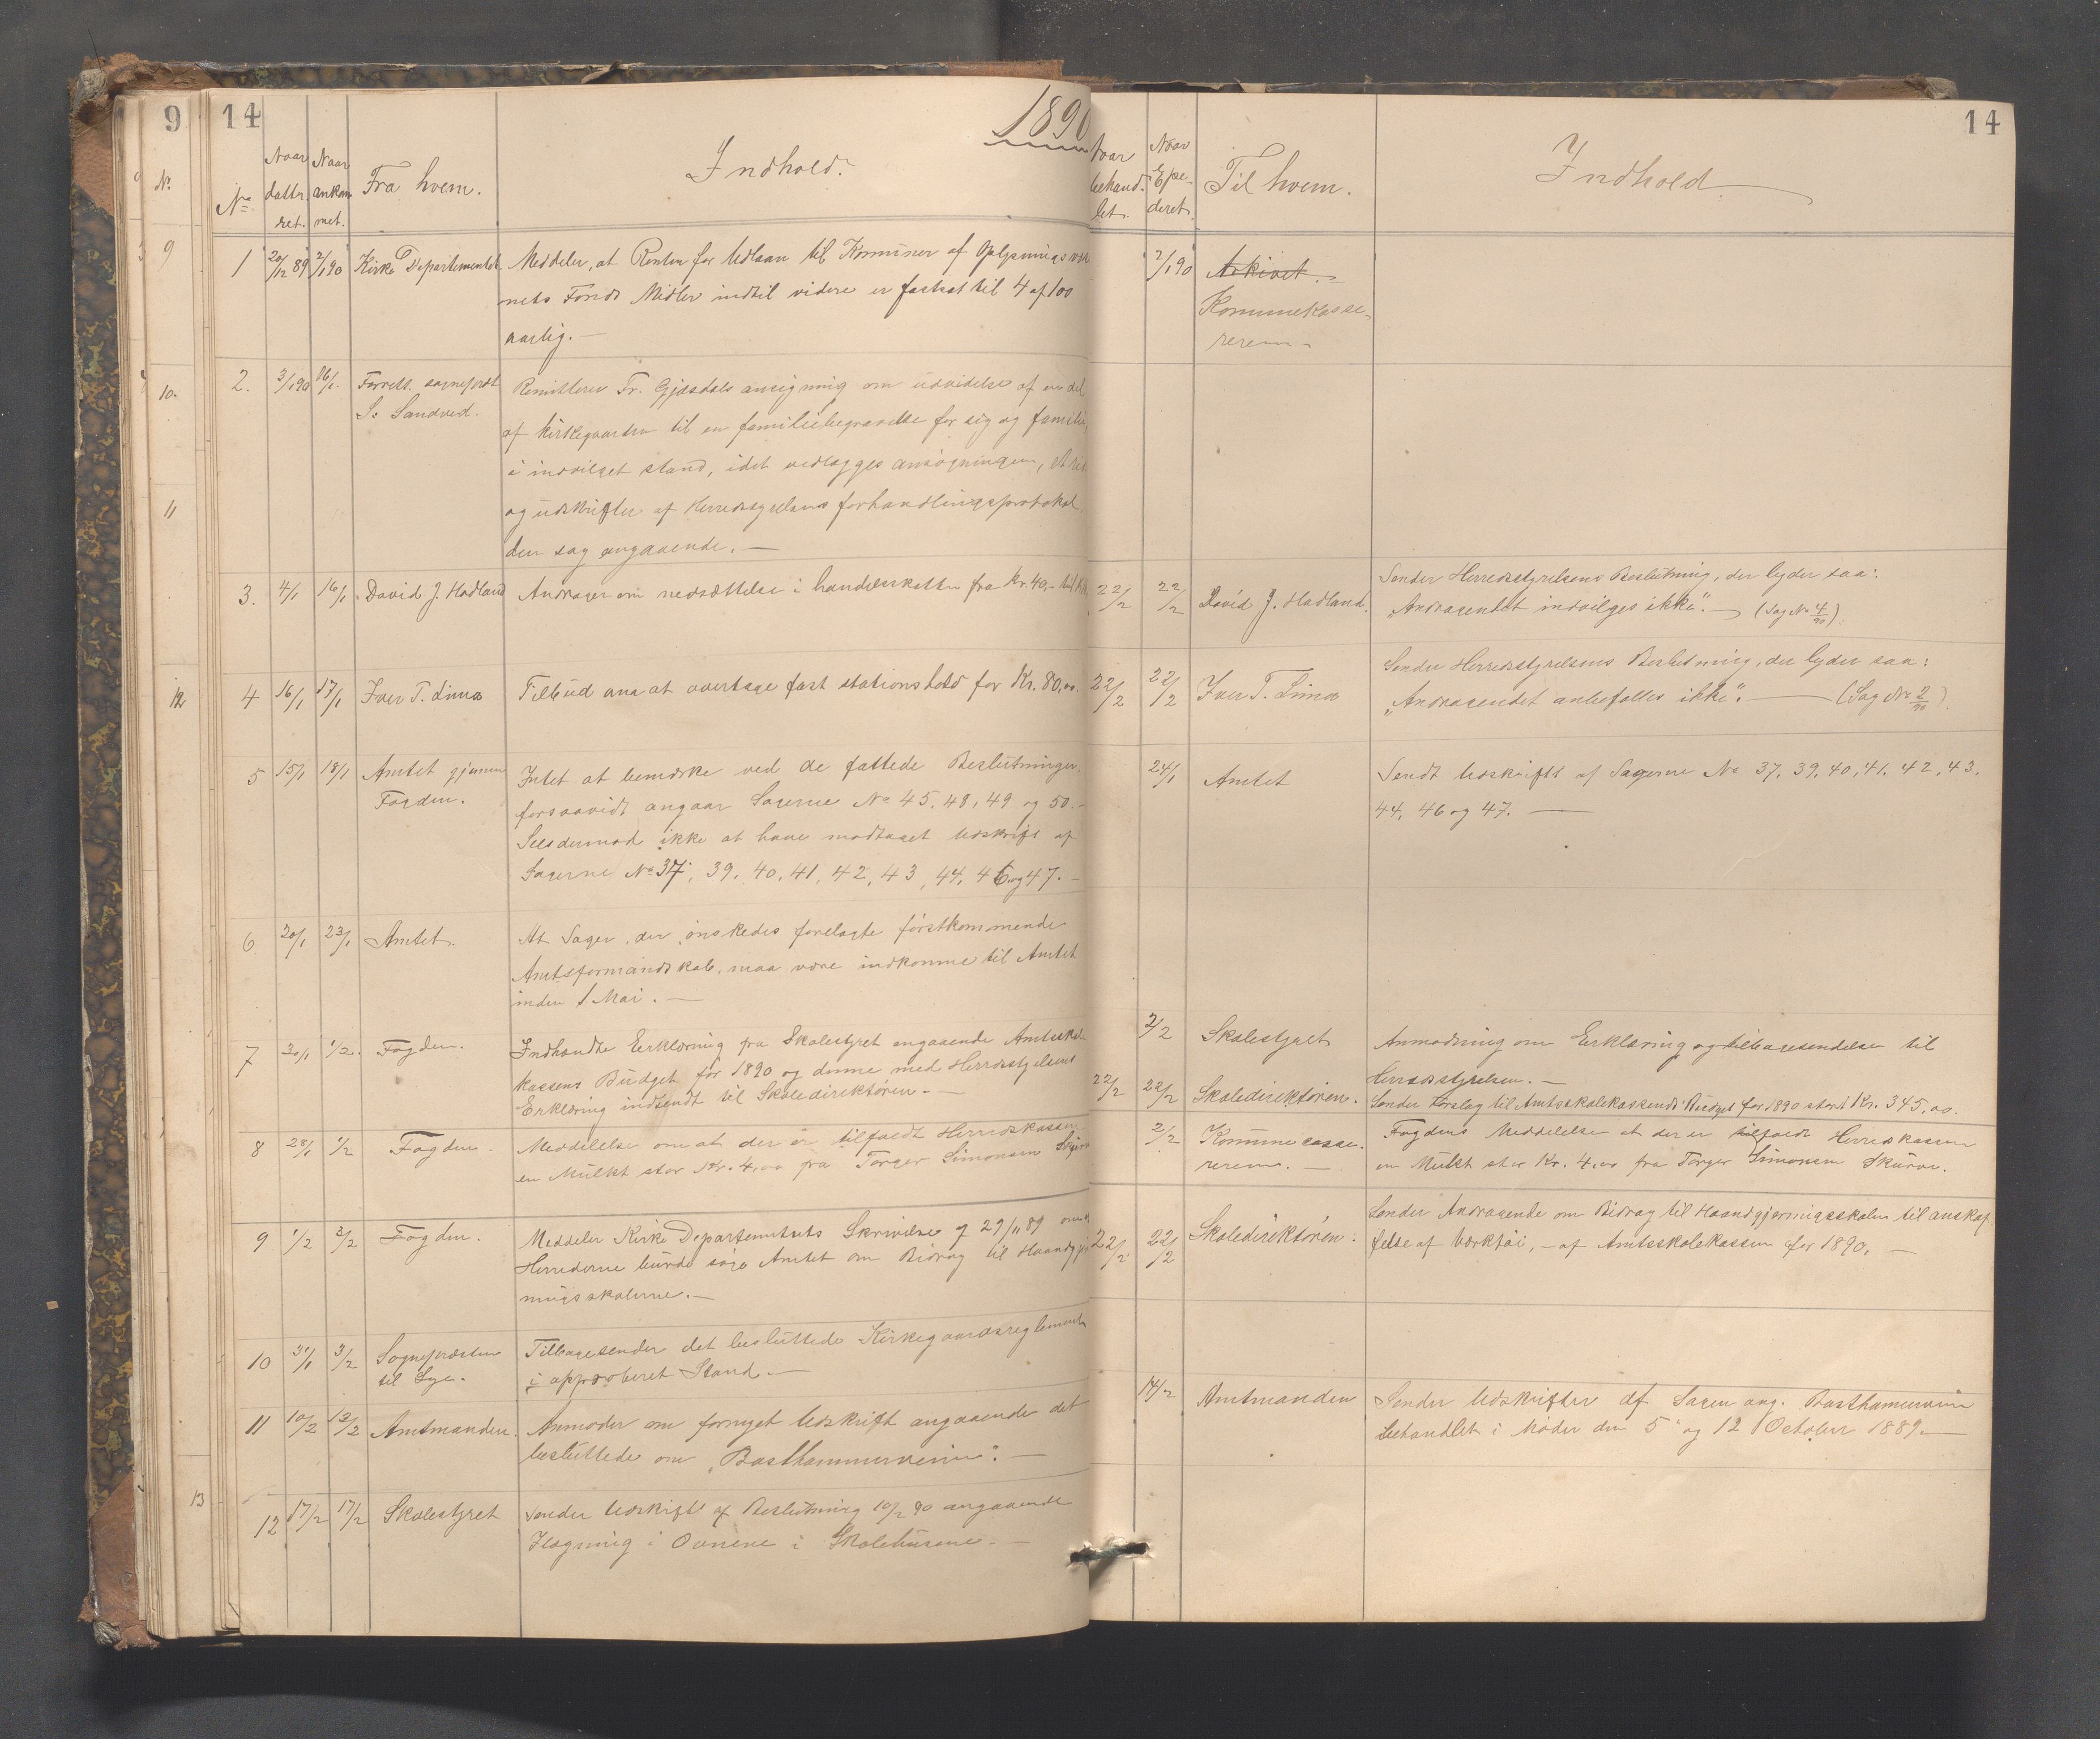 9
14
1890
14
No
Naar datteret.
Naar ankommet.
Fra hvem.
Indhold.
Naar behandlet.
Naar Expederet.
Til hvem.
Indhold
1 20/12 89 2/1 90 Kirke Departementet
Meddeler, at Renten for Udlaan til Kommuner af Oplysningsvæs
nets Fonds Midler indtil videre er fastsat til 4 af 100
aarlig.—
2/1 90 Arkivet.
Kommunekasse-
reren.
2. 3/1 90 16/1. Forrett. sognepræst
S. Sandved.
Remitterer Tr. Gjesdals ansøgning om udvidelse af en del
af kirkegaarden til en familiebegravelse for sig og familie,
i indvilget stand, idet vedlægges ansøgningen,
og udskrifter af Herredsstyrelsens forhandlingsprotokol
den sag angaaende.—
3. 4/1 16/1 David J. Hadland
Andrager om nedsættelse i handelsskatten fra Kr. 40,- til
22/2 22/2 David J. Hadland.
Sender Herredsstyrelsens Beslutning, der lyder saa:
„Andragendet indvilges ikke".— (Sag No 4/90).
4 16/1 17/1 Iver T. Lima
Tilbud paa at overtage fast stationshold for Kr. 80,00.
22/2 22/2 Iver T. Lima
Sender Herredsstyrelsens Beslutning, der lyder saa:
„Andragendet anbefales ikke".— (Sag No 2/90).
5 15/1 18/1 Amtet gjennem
Fogden.
Intet at bemærke ved de fattede Beslutninger,
forsaavidt angaar Sagerne No 45, 48, 49 og 50.-
Sees dermod ikke at have modtaget Udskrift af
Sagerne No 37, 39, 40, 41, 42, 43, 44, 46 og 47.-
24/1 Amtet
Sendt Udskrift af Sagerne No 37, 39, 40, 41, 42, 43,
44, 46 og 47.—
6 20/1 23/1 Amtet.
At Sager, der ønskedes forelagte førstkommende
Amtsformandskab, maa være indkomne til Amtet
inden 1 Mai.—
7 30/1 1/2. Fogden.
Indhendte Erklæring fra Skolestyret angaaende Amtsskole
kassens Budget for 1890 og denne med Herredsstyrelsens
Erklæring indsendt til Skoledirektøren.—
2/2 Skolestyret
Anmodning om Erklæring og tilbagesendelse til
Herredsstyrelsen.—
22/2 22/2 Skoledirektøren.
Sender Forslag til Amtsskolekassens Budget for 1890 stort Kr. 345,00.
8 28/1 1/2 Fogden.
Meddelelse om at der er tilfaldt Herredskassen
en Mulkt stor Kr. 4,00 fra Torger Simonsen
2/2 Kommunecasse-
reren.—
Fogdens Meddelelse at der er tilfaldt Herredskassen
en Mulkt stor Kr. 4,00 fra Torger Simonsen Skurve.
9 1/2 3/2 Fogden.
Meddeler Kirke Departementets Skrivelse af 29/11 89 om at
Herrederne burde søge Amtet om Bidrag til Haandgjer
ningsskolerne.—
22/2 22/2 Skoledirektøren.
Sender Andragende om Bidrag til Haandgjerningsskolen til anskaf
felse af Værktøi, - af Amtsskolekassen for 1890.—
10 31/1 3/2 Sognepræsten
til Lye.
Tilbagesender det besluttede Kirkegaardsreglement
i approberet Stand.—
11 10/2 13/2 Amtmanden.
Anmoder om fornyet Udskrift angaaende det
besluttede om „Basthammerveien".—
14/2 Amtmanden
Sender Udskrifter af Sagen ang. Basthamerveien
behandlet i Møder den 5 og 12 October 1889.—
12 17/2 17/2 Skolestyret
Sender Udskrift af Beslutning 10/2 90 angaaende
Ilægning i Ovnene i Skolehusene.—
No.
9
10.
11
12
13